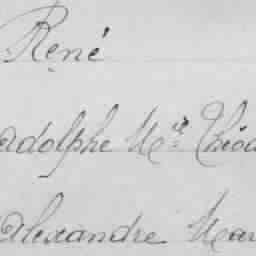 René
Adolphe Mie Théod
Alexandre Mar